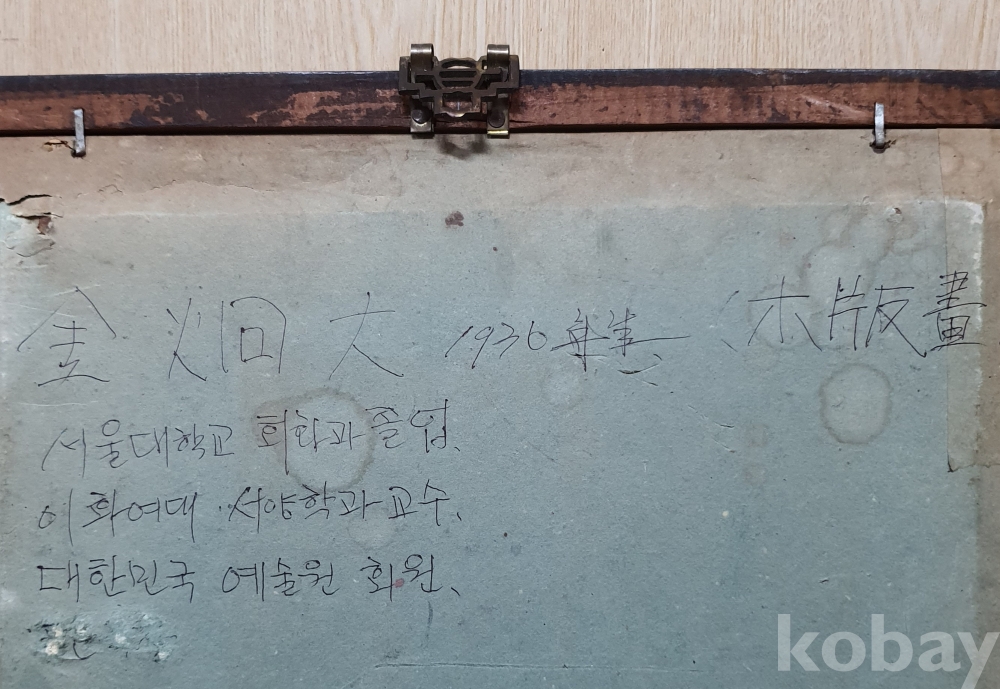 金炯大 1936 年生 木版畫
서울대학교 회화과 졸업.
이화여대 서양학과 교수.
대한민국 예술원 회원.
kobay